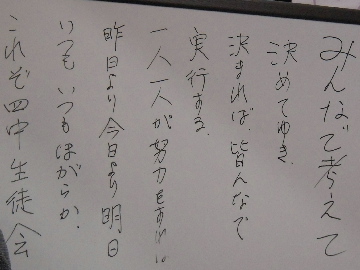 みんなで考えて
決めてゆき
決まれば、皆んなで
実行する。
一人一人が努力をすれば
昨日より今日より明日
いつもいつもほがらか、
これぞ四中生徒会